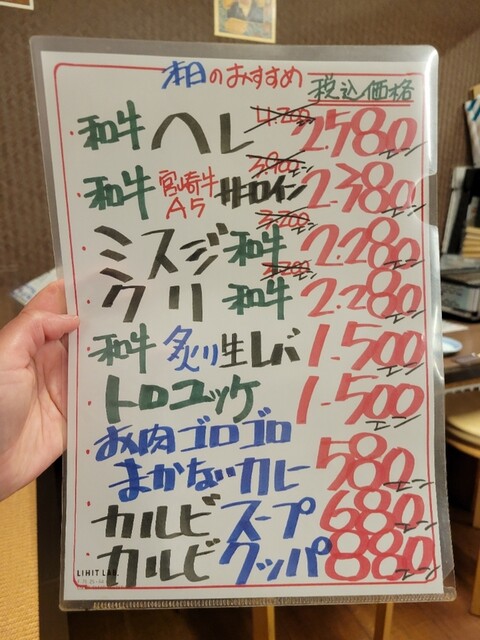 本日のおすすめ 税込価格
和牛 ヘレ 4.200 2.580エン
和牛 宮崎牛 A5 サーロイン 3.900エン 2.380エン
ミスジ 和牛 3,200エン 2.280エン
クリ 和牛 3,200エン 2.280エン
和牛 炙り生レバ 1.500エン
トロユッケ 1.500エン
お肉ゴロゴロ
まかないカレー 580エン
カルビスープ 680エン
カルビクッパ 880エン
LIHIT LAB.